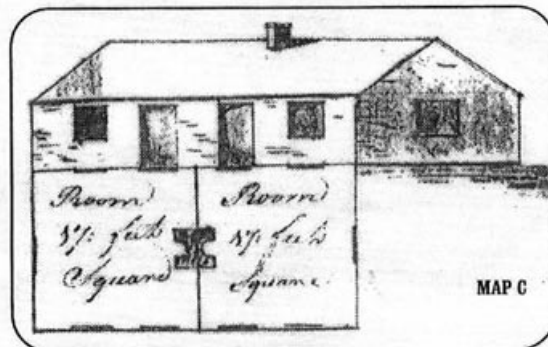 Room
17 feet
Square
Room
17 feet
Square
MAP C